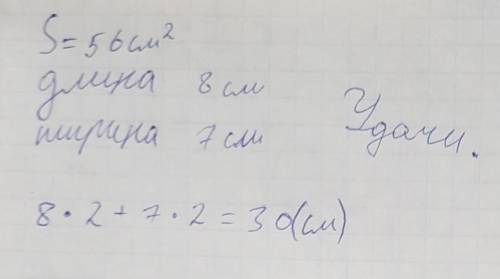 S=56см²
длина 8см
ширина 7см
Удачи.
8·2+7·2=30(см)